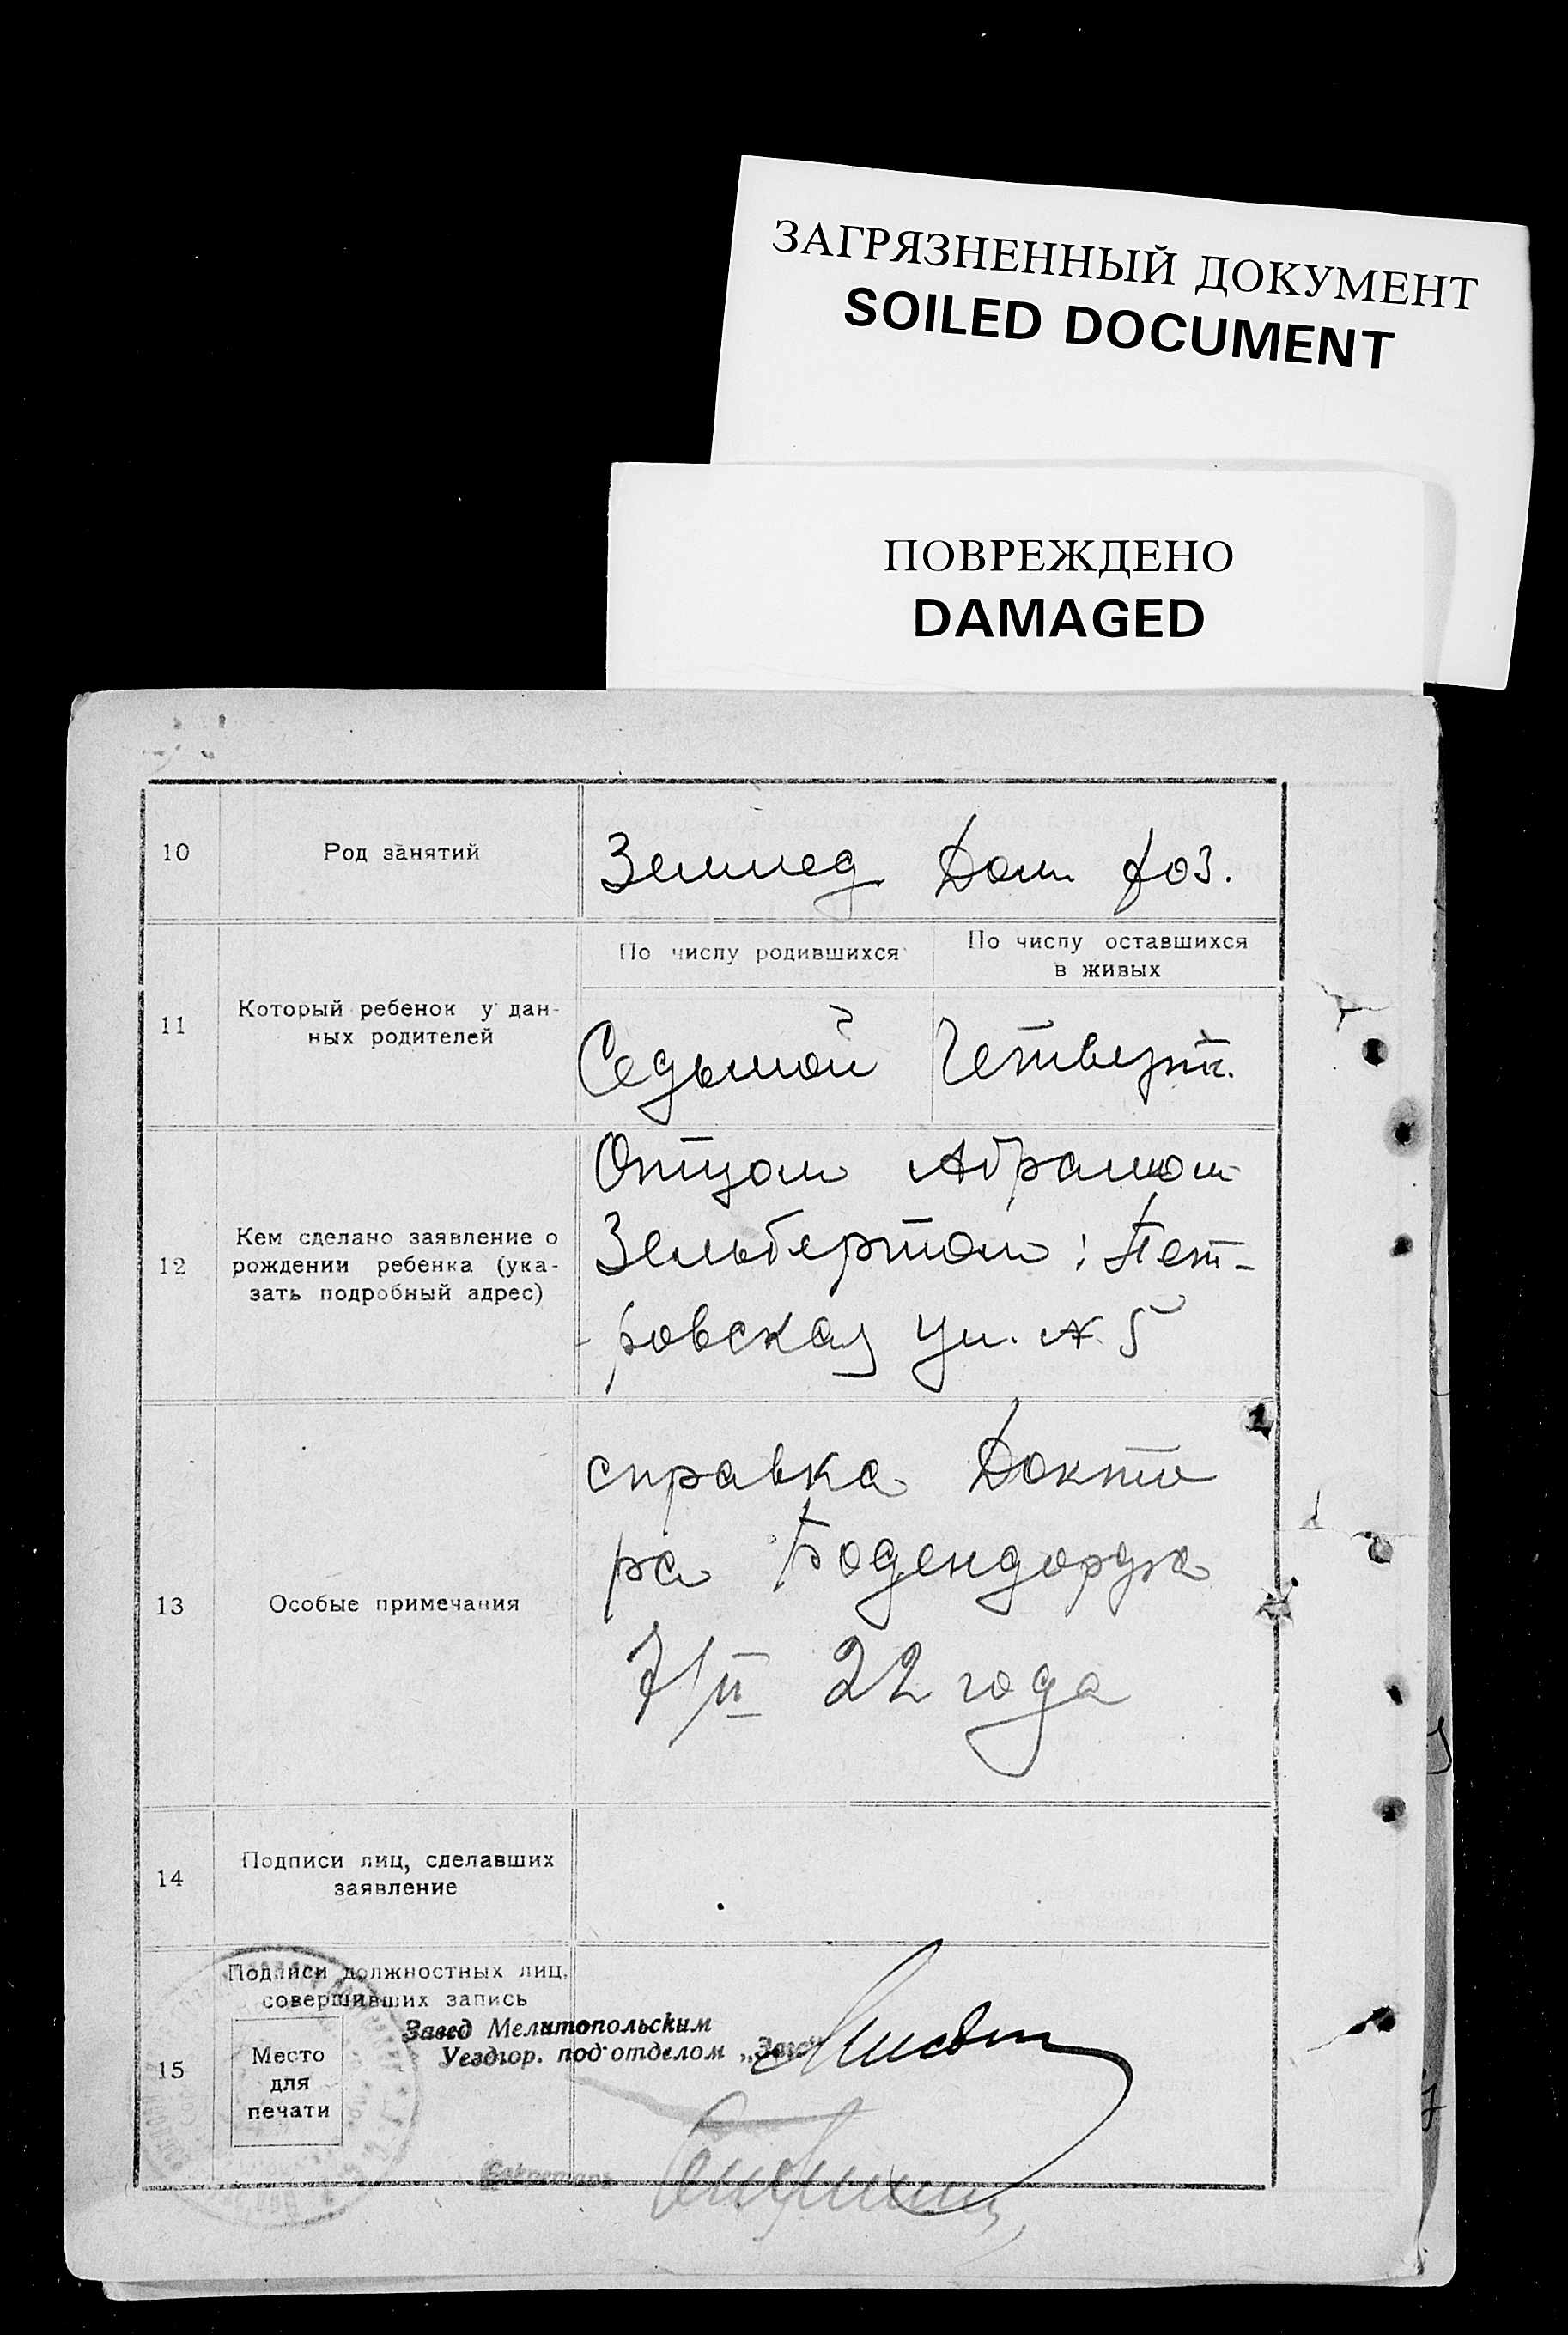 ЗАГРЯЗНЕННЫЙ ДОКУМЕНТ
SOILED DOCUMENT
ПОВРЕЖДЕНО
DAMAGED
10
Род занятий
Землед Дом хоз.
11
Который ребенок у дан-
ных родителей
По числу родившихся
По числу оставшихся
в живых
Седьмой
Четверт.
12
Кем сделано заявление о
рождении ребенка (ука-
зать подробный адрес)
Отцом Абрамом
Зельбертом; Пет-
ровская ул. № 5
13
Особые примечания
справка Докто
ра Бодендорфа
7/II 22 года
14
Подписи лиц, сделавших
заявление
15
Подписи должностных лиц,
совершивших запись
Место
для
печати
Завед Мелитопольским
Уездгор. подотделом „Загс“
Секретарь